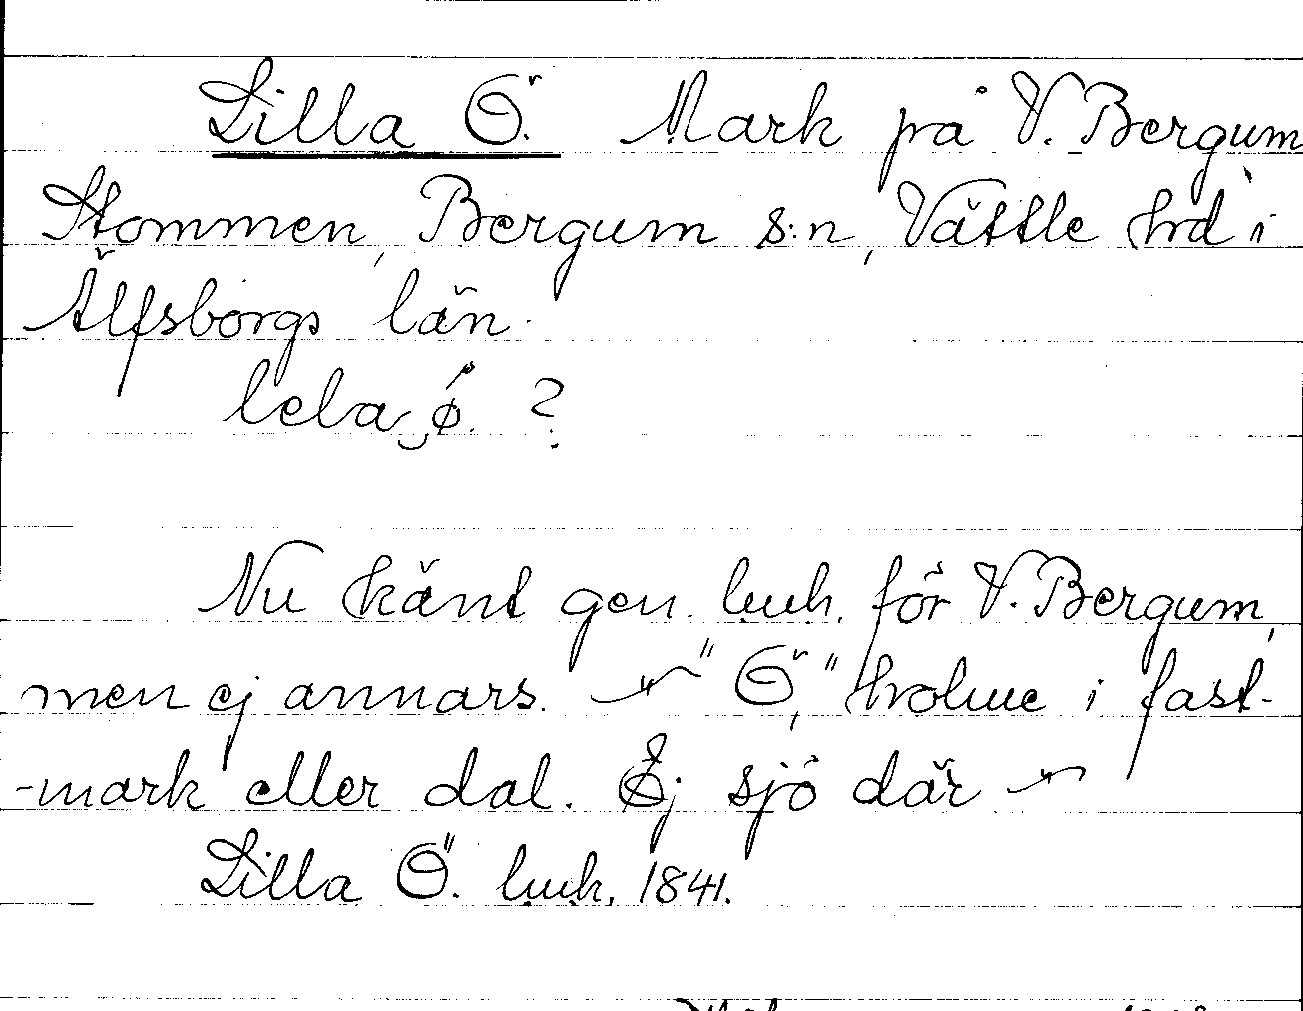 Lilla Ö. Mark på V. Bergum
Stommen, Bergum s:n, Vättle hrd i
Älfsborgs län.
lela ø. ?
Nu känt gen. luuh. för V. Bergum,
men ej annars. "Ö," holme i fast-
-mark eller dal. Ej sjö där
Lilla Ö. luuk. 1841.